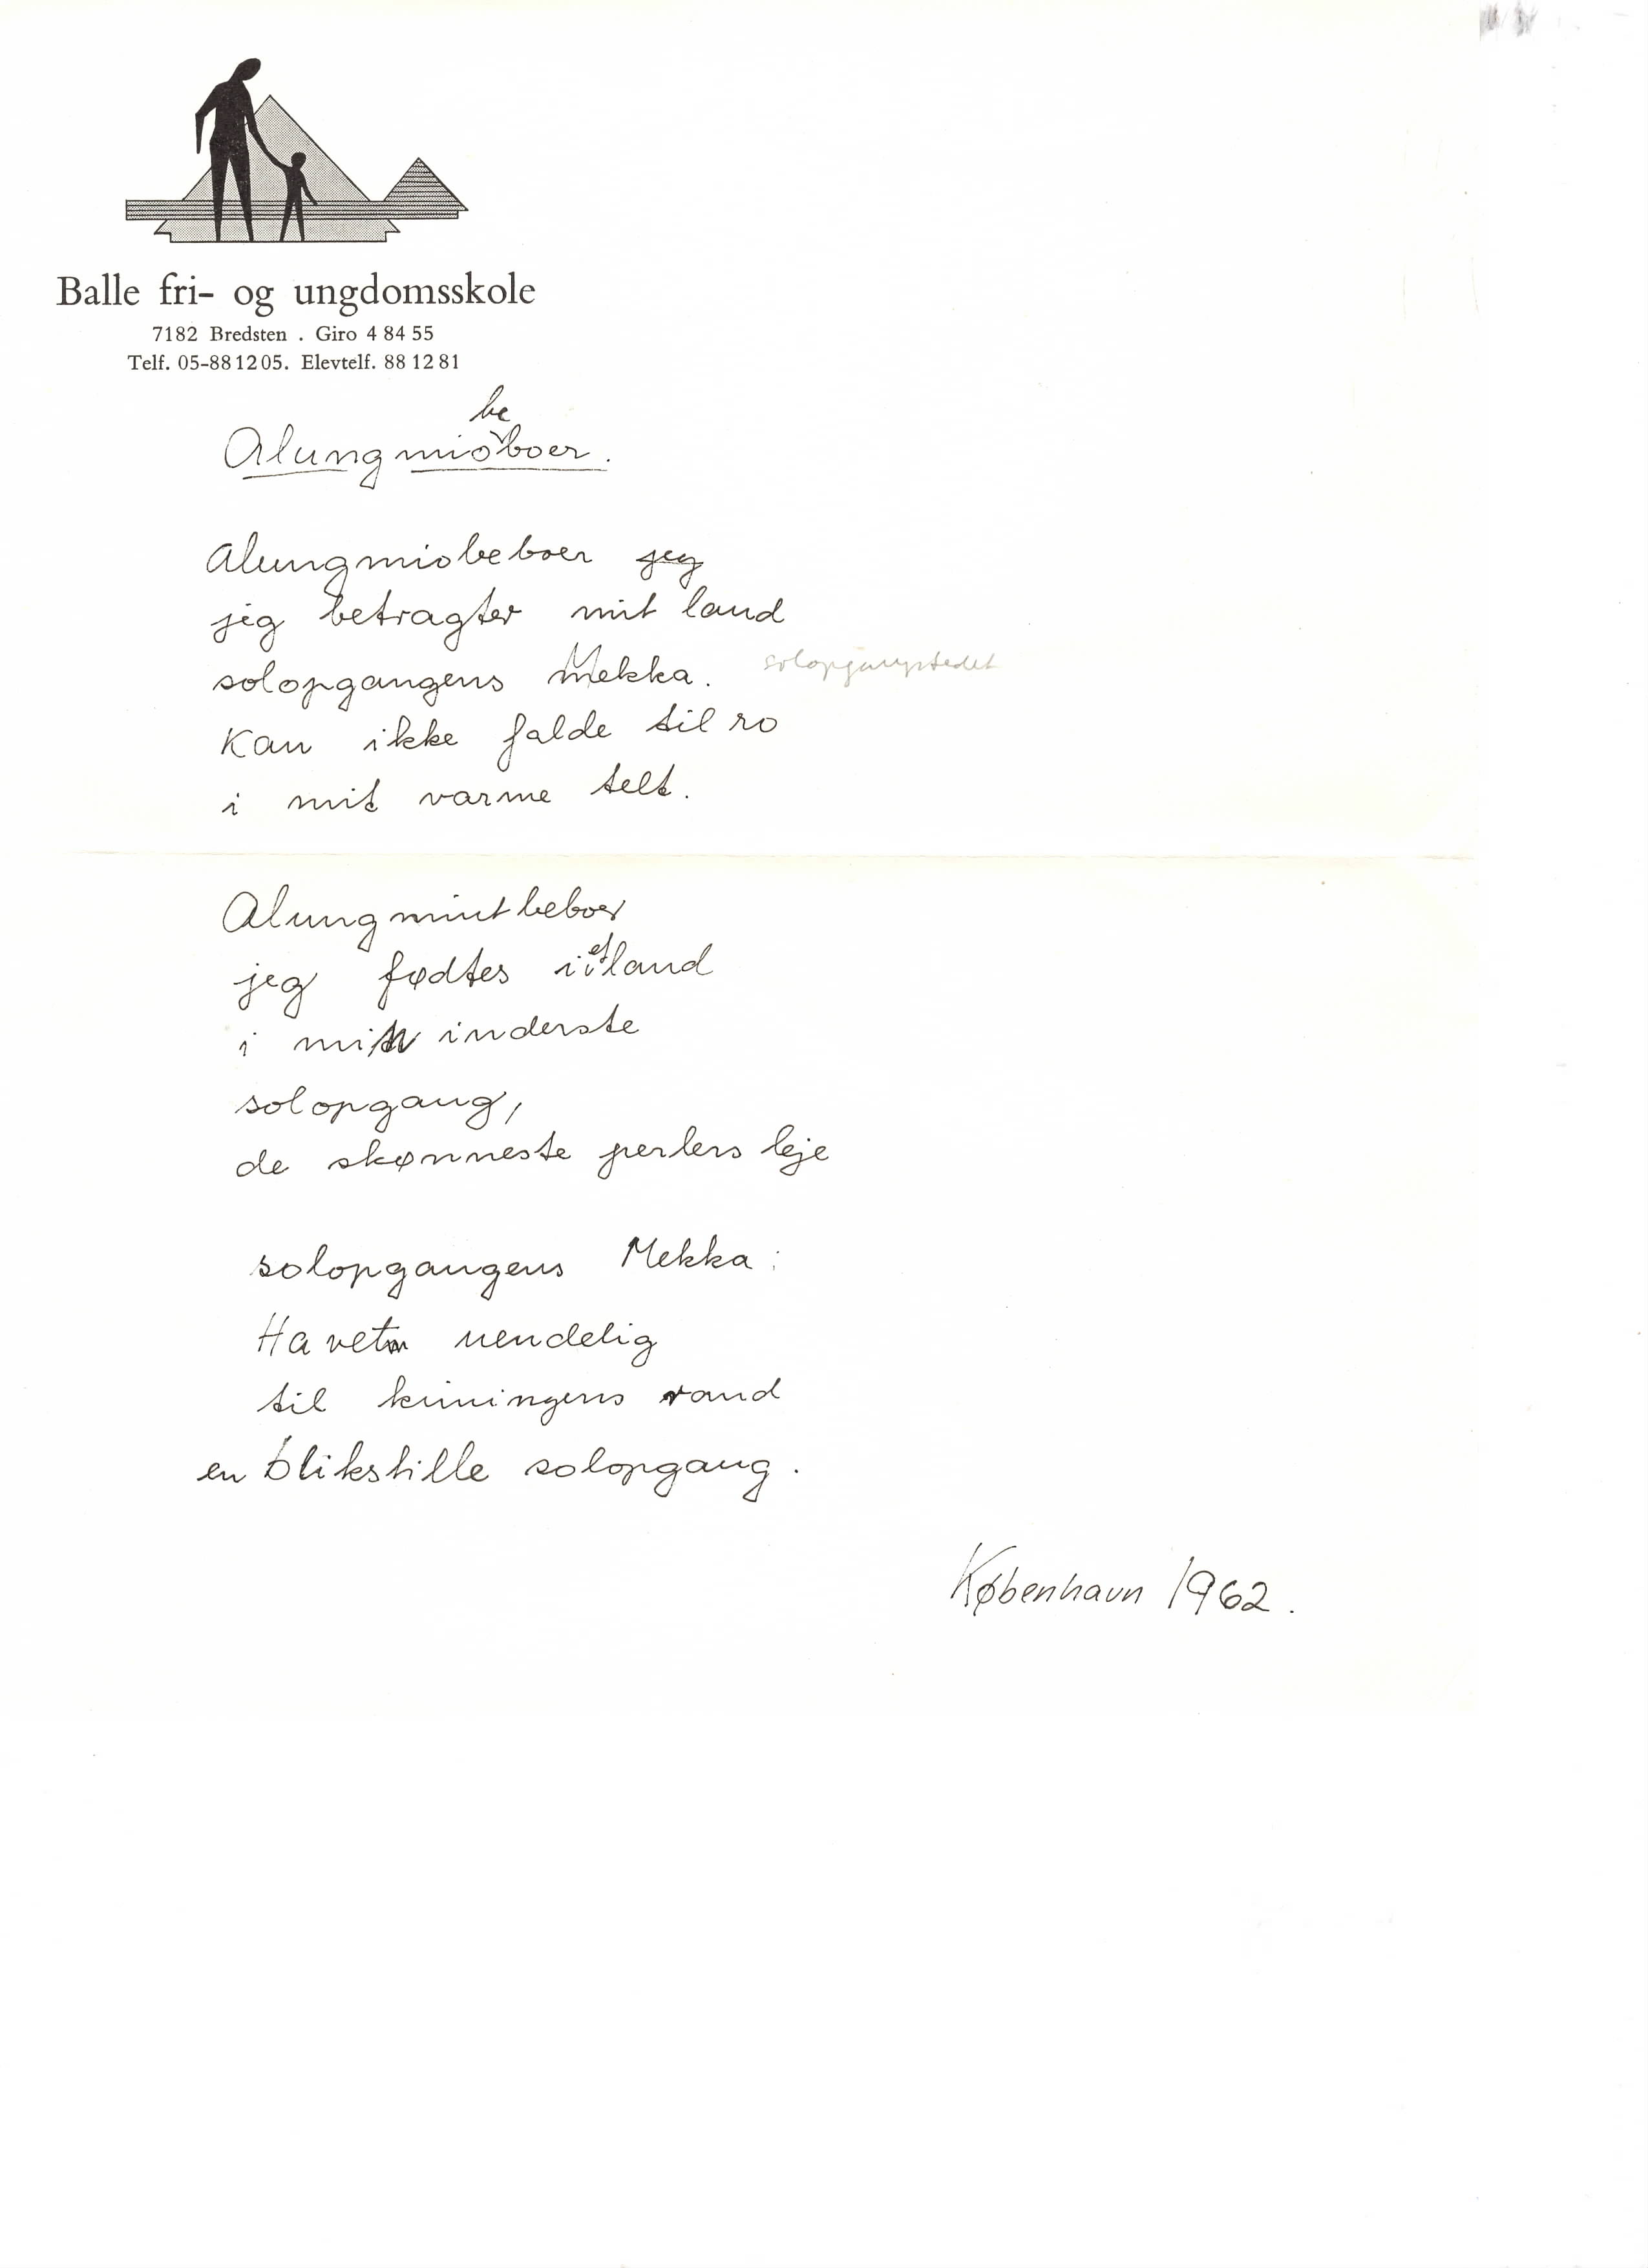 Balle fri- og ungdomsskole
7182 Bredsten . Giro 4 84 55
Telf. 05-88 12 05. Elevtelf. 88 12 81
Alungmiobeboer.
Alungmiobeboer jeg
jeg betragter mit land
solopgangens Mekka. solopgangstedet
Kan ikke falde til ro
i mit varme telt.
Alungmiutbeboer
jeg fødtes i et land
i min inderste
solopgang,
de skønneste perlers leje
solopgangens Mekka:
Havet uendelig
til kimingens rand
en blikstille solopgang.
København 1962.